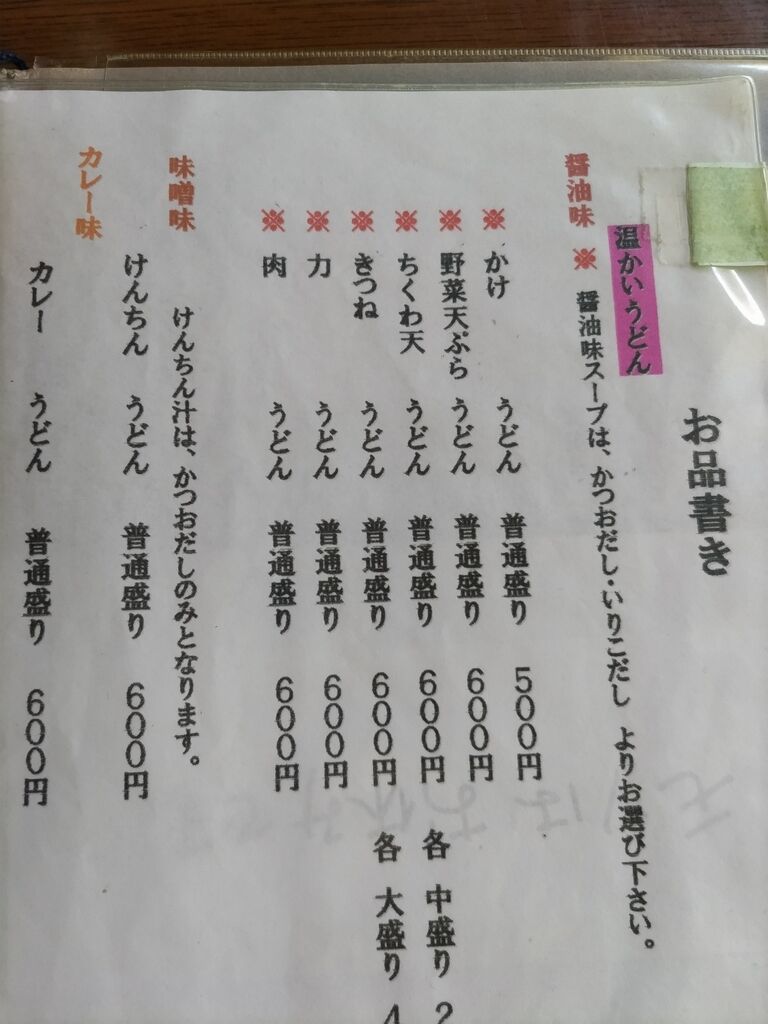 お品書き
温かいうどん
醤油味 ※ 醤油味スープは、かつおだし・いりこだし よりお選び下さい。
※ かけ うどん 普通盛り 500円
※ 野菜天ぷら うどん 普通盛り 600円 各 中盛り 2
※ ちくわ天 うどん 普通盛り 600円 各 大盛り 4
※ きつね うどん 普通盛り 600円
※ 力 うどん 普通盛り 600円
※ 肉 うどん 普通盛り 600円
味噌味 けんちん汁は、かつおだしのみとなります。
けんちん うどん 普通盛り 600円
カレー味
カレー うどん 普通盛り 600円